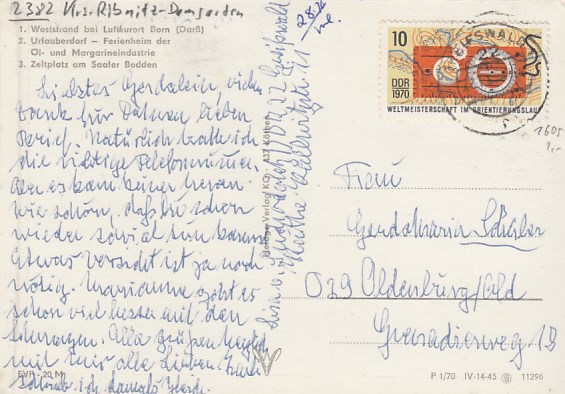 2382 Krs. Ribnitz-Damgarten
1. Weststrand bei Luftkurort Born (Darß)
2. Urlauberdorf – Ferienheim der
Öl- und Margarineindustrie
3. Zeltplatz am Saaler Bodden
Liebstes Gerdalein, vielen
Dank für Deinen lieben
Brief. Natürlich hatte ich
die richtige Telefonnummer.
Aber es kam keiner heran.
Wie schön, daß Du schon
wieder so viel tun kannst.
Etwas Vorsicht ist ja noch
nötig. Marianne geht es
schon viel besser mit dem
Magen. Alle grüßen herzlich
mit mir alle Lieben
schrieb ich damals
EVP -20 M
Herloge Verlag KG, 437 Köthen
22 Greifswald
10
DDR
1970
WELTMEISTERSCHAFT IM ORIENTIERUNGSLAUF
GREIFSWALD
22
1605
Frau
Gerdamaria
029 Oldenburg/Old
Grenadierweg 1B
P 1/70 IV-14-45 11296